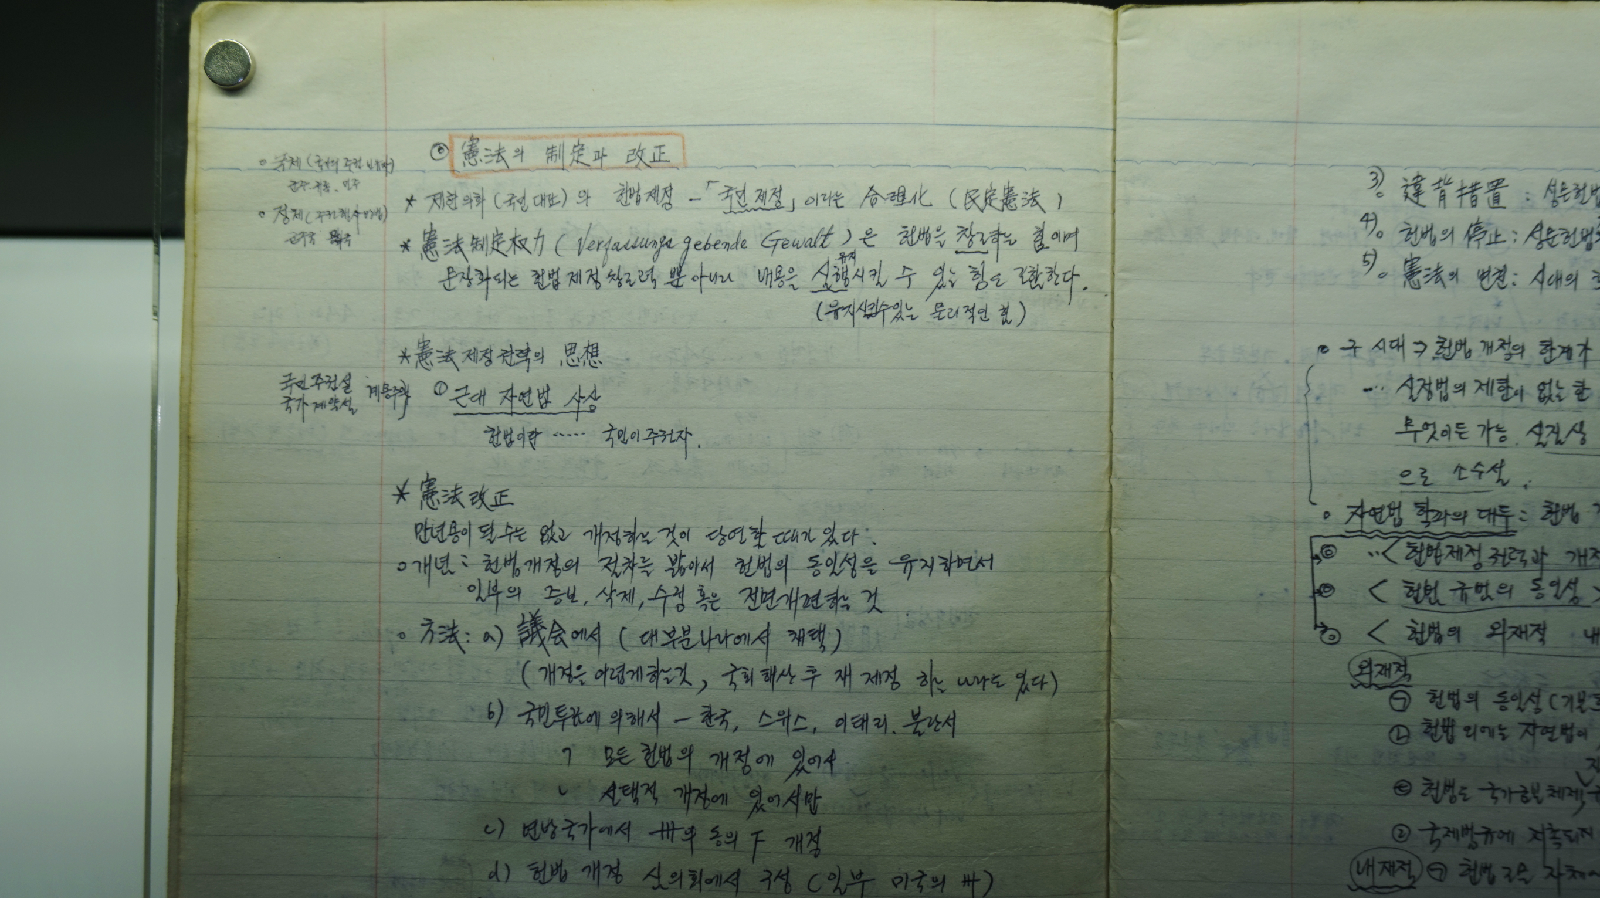 ◎ 憲法의 制定과 改正
* 제헌의회(국민 대표)와 헌법제정 - 「국민 제정」이라는 合理化 (民定憲法)
* 憲法制定权力 (Verfassungs gebende Gewalt)은 헌법을 창조하는 힘이며
문장화되는 헌법 제정 창조력 뿐 아니라 내용을 실행시킬 수 있는 힘도 포함한다.
유지
(유지시킬 수 있는 물리적인 힘)
* 憲法 제정 권력의 思想
국민주권설
국가계약설
계몽주의
① 근대 자연법 사상
헌법이란 ····· 국민이 주권자.
* 憲法改正
만년용이 될 수는 없고 개정하는 것이 당연할 때가 있다.
○ 개념 : 헌법개정의 절차를 밟아서 헌법의 동일성을 유지하면서
일부의 증보, 삭제, 수정 혹은 전면개편하는 것
○ 方法 : a) 議会에서 (대부분 나라에서 채택)
(개정은 어렵게 하는 것, 국회 해산 후 재 제정 하는 나라도 있다)
b) 국민투표에 의해서 - 한국, 스위스, 이태리. 불란서
ㄱ 모든 헌법의 개정에 있어서
ㄴ 선택적 개정에 있어서만
c) 연방국가에서 州의 동의 下 개정
d) 헌법 개정 심의회에서 구성 (일부 미국의 州)
○ 국체 (국가의 주권
○ 정체 (
3)○ 違背措置 : 성문헌법
4)○ 헌법의 停止 : 성문헌법
5)○ 憲法의 변천 : 시대의
○ 구 시대 → 헌법 개정의 한계가
··· 실정법의 제한이 없는 한
무엇이든 가능. 실질상
으로 소수설.
○ 자연법 학파의 대두 : 헌법
··< 헌법제정 권력과 개정
< 헌법 규범의 동일성 >
< 헌법의 외재적 내
외재적
㉠ 헌법의 동일성 (기본
㉡ 헌법 외에는 자연법이
㉢ 헌법도 국가
㉣ 국제법규에 저촉되지
내재적 ㉠ 헌법 조문 자체